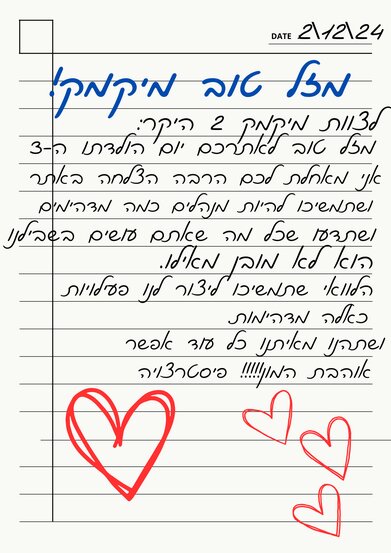 DATE 2\12\24
מזל טוב מיקמק!
לצוות מיקמק 2 היקר:
מזל טוב לאתרכם יום הולדתו ה-3
אני מאחלת לכם הרבה הצלחה באתר
ושתמשיכו להיות מנהלים כמה מדהימים
ושתדעו שכל מה שאתם עושים בשבילנו
הוא לא מובן מאילו.
הלוואי שתמשיכו ליצור לנו פעילויות
כאלה מדהימות
ושתהנו מאיתנו כל עוד אפשר
אוהבת המון!!!!! פיסטרצויה